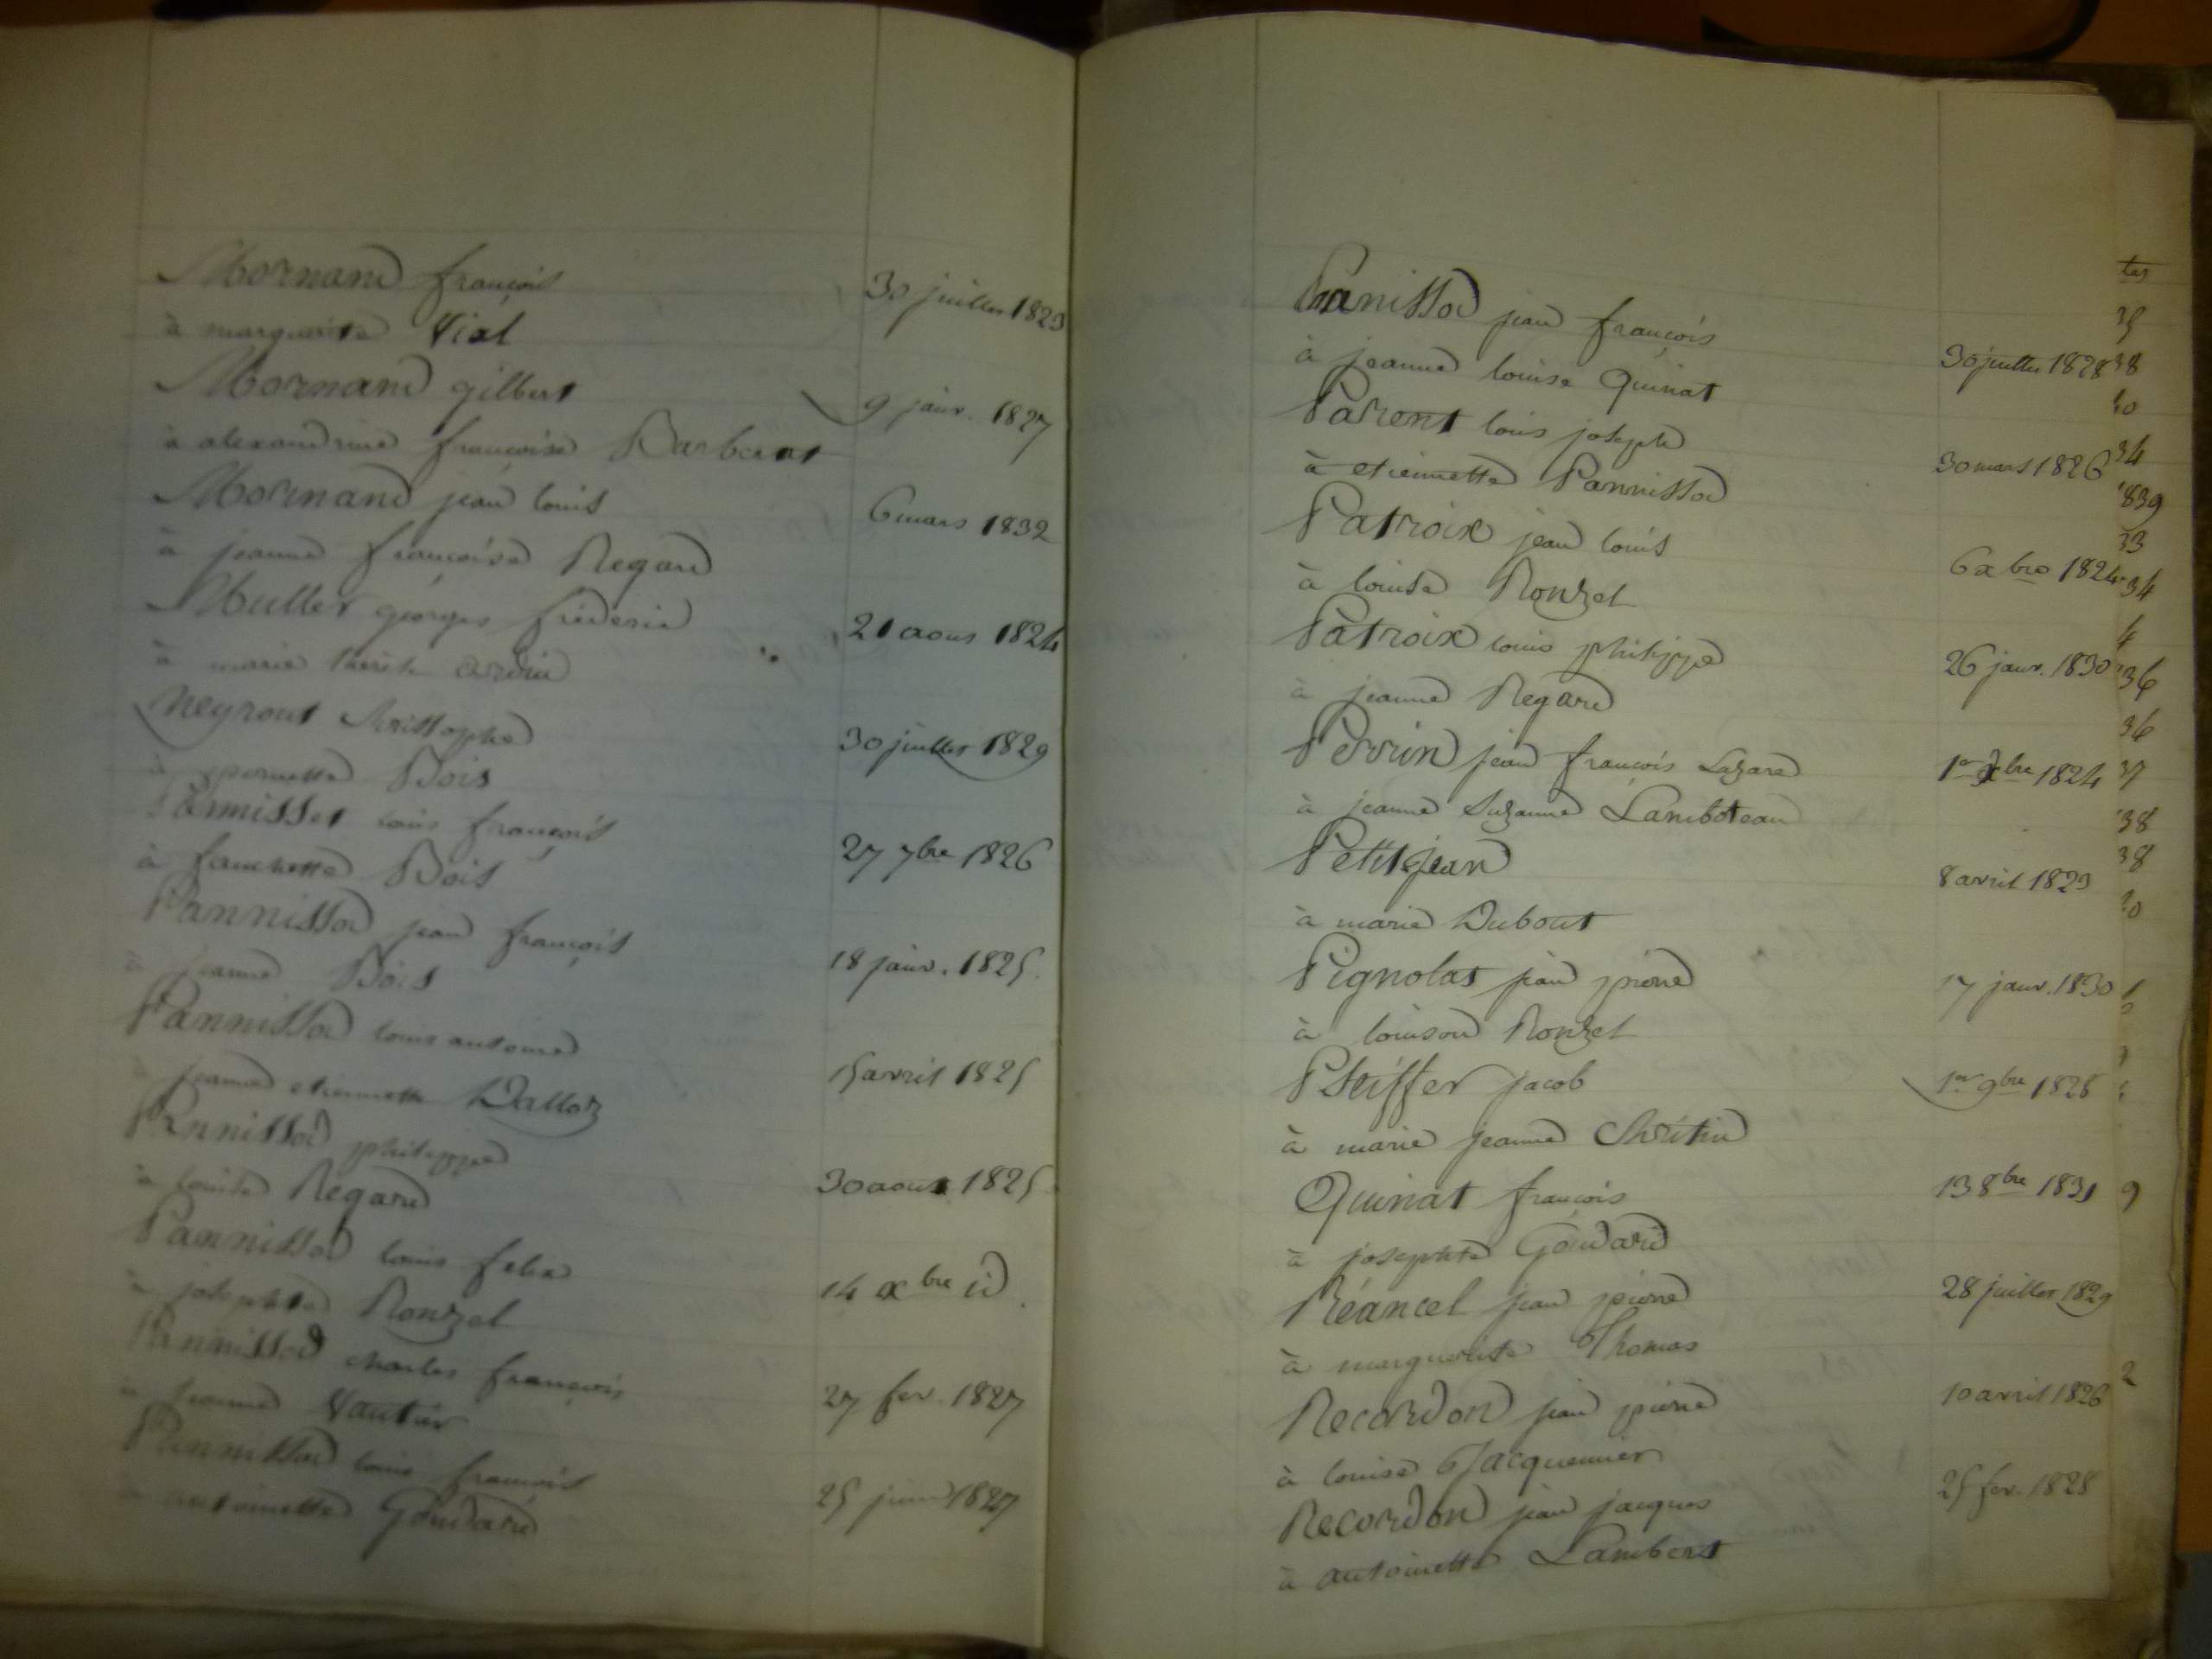 Mornand françois
30 juillet 1823
à marguerite Vial
Mornand gilbert
9 janv. 1827
à alexandrine françoise Barberat
Mornand jean louis
6 mars 1832
à jeanne françoise Regard
Muller georges fréderic
21 aout 1824
à marie
Neyrout christophe
30 juillet 1829
à pernette Bois
louis françois
27 7bre 1826
à franchette Bois
Pannissod jean françois
18 janv. 1825
à jeanne Bois
Pannissod louis antoine
15 avril 1825
à jeanne etiennette Dalloz
Pannissod philippe
30 aout 1825
à louise Regard
Pannissod louis felix
14 xbre id
à josephte Ronzel
Pannissod charles françois
27 fev. 1827
à jeanne Vautier
Pannissod louis françois
25 juin 1827
à antoinette Goudard
Panissod jean françois
30 juillet 1828
à jeanne louise Quinat
Parent louis joseph
30 mars 1826
à etiennette Pannissod
Patroix jean louis
6 xbre 1824
à louise Ronzel
Patroix louis philippe
26 janv. 1830
à jeanne Regard
Perrin jean françois Lazare
1er xbre 1824
à jeanne Suzanne Lamboteau
Petitjean
8 avril 1823
à marie Dubout
Pignolat jean pierre
17 janv. 1830
à louison Ronzel
Pfeiffer jacob
1er 9bre 1828
à marie jeanne
Quinat françois
13 8bre 1831
à josephte Goudard
Réancel jean pierre
28 juillet 1829
à marguerite Thomas
Recordon jean pierre
10 avril 1826
à louise Jacquemier
Recordon jean jacques
25 fev. 1828
à antoinette Lambert
tes
35
38
40
34
1839
33
34
4
36
36
37
38
38
40
9
2